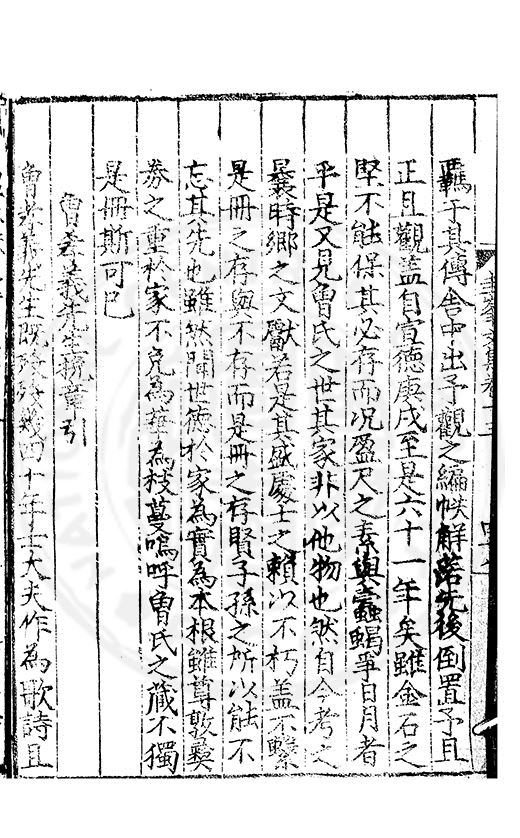 羈于其傳舍中出予觀之編帙解落先後倒置予且
正且觀盖自宣德庚戌至是六十一年矣雖金石之
堅不能保其必存而况盈尺之素與蠹蝎爭日月者
乎是又見曾氏之世其家非以他物也然自今考之
曩時鄉之文獻若是其盛處士之賴以不朽盖不繫
是冊之存與不存而是冊之存賢子孫之所以能不
忘其先也雖然閥世德於家為實為本根雖尊敦彜
券之重於家不免為華為枝蔓嗚呼曾氏之藏不獨
是冊斯可已
曾孝義先生輓章引
曾孝義先生既歿歿幾四十年士大夫作為歌詩且